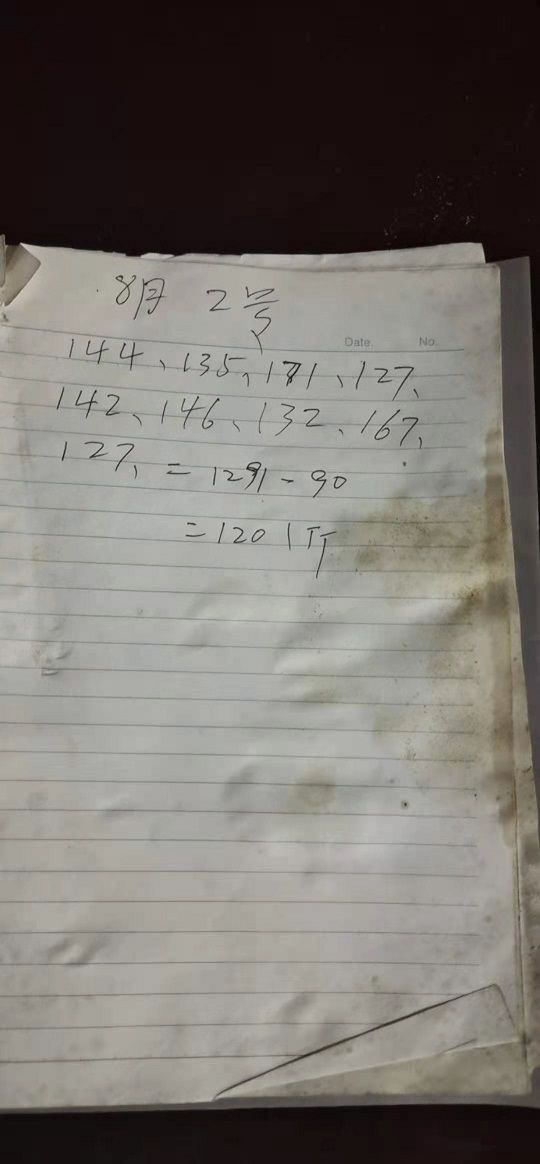 8月 2号
Date. No.
144、135、171、127、
142、146、132、167、
127、= 1291 - 90
= 1201斤